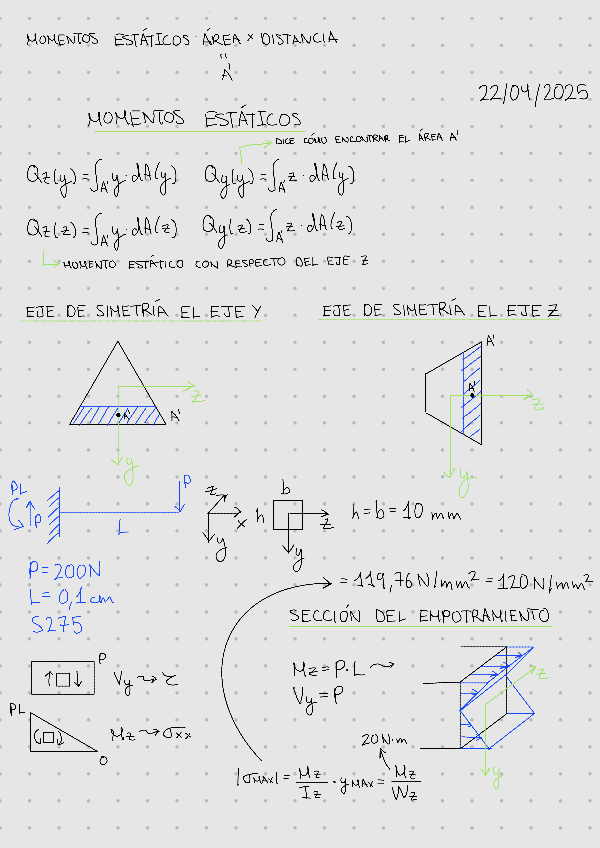 MOMENTOS ESTÁTICOS: ÁREA × DISTANCIA
"
A'
22/04/2025
MOMENTOS ESTÁTICOS
DICE CÓMO ENCONTRAR EL ÁREA A'
Qz(y) = ∫A' y · dA(y) Qy(y) = ∫A' z · dA(y)
Qz(z) = ∫A' y · dA(z) Qy(z) = ∫A' z · dA(z)
MOMENTO ESTÁTICO CON RESPECTO DEL EJE Z
EJE DE SIMETRÍA EL EJE Y EJE DE SIMETRÍA EL EJE Z
A'
A'
z
A'
A'
z
y
y
PL
P
P
L
z
x
y
b
h
z
y
h = b = 10 mm
P = 200N
L = 0,1 cm
S275
= 119,76 N/mm² = 120 N/mm²
SECCIÓN DEL EMPOTRAMIENTO
P
Vy ⇝ τ
Mz = P · L ⇝
Vy = P
z
y
PL
0
Mz ⇝ σxx
20 N·m
|σMAX| = Mz/Iz · yMAX = Mz/Wz